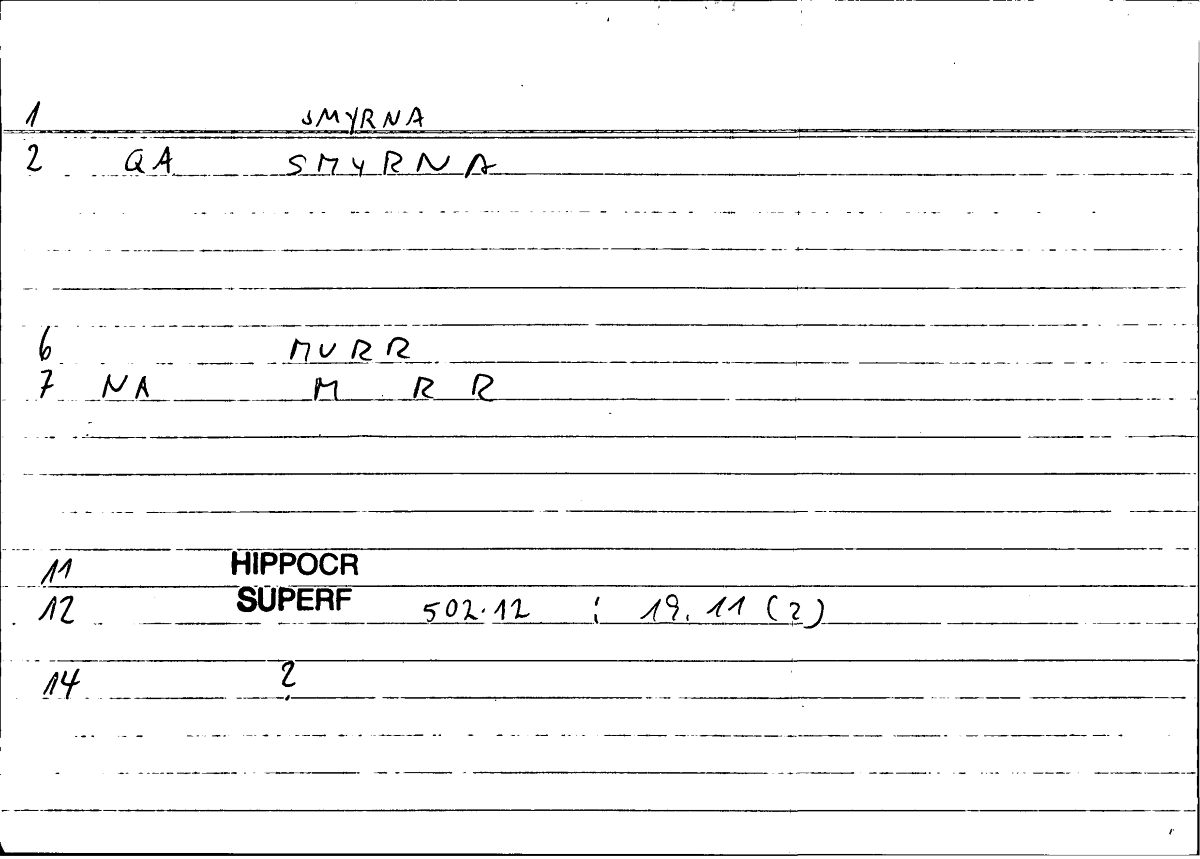 1 SMYRNA
2 QA SMYRNA
6 MURR
7 NA M R R
11 HIPPOCR
12 SUPERF 502.12 ; 19.11 (2)
14 ?